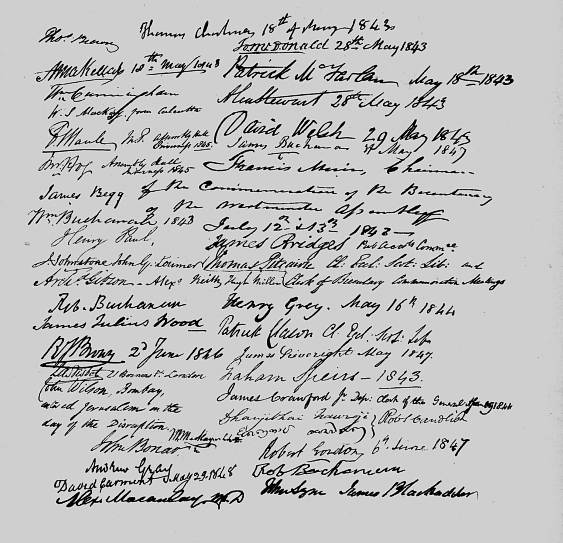 Thos. Brown Thomas Chalmers 18th of May 1843
Jo. McDonald 28th May 1843
A. McKellar 18th May 1843 Patrick McFarlan May 18th 1843
Wm Cunningham
A. Stewart 28th May 1843
W. S. Mackay from Calcutta
F. Maule M.P. Assembly Hall 1845 David Welsh 29 May 1843
James Buchanan May 1847
Assembly Hall 1845 Francis Muir, Chairman
James Begg of the Commemoration of the Bicentenary
of the Westminster Assembly
Wm Buchanan 1843 July 12th & 13th 1843
Henry Paul James Bridges
J. Johnstone John G. Lorimer Thomas Pitcairn Cl. Eccl. Scot. Lib. and
Archd. Gibson Alexr. Keith Hugh Miller Clerk of Bicentenary Commemoration Meetings
Rob. Buchanan Henry Grey. May 16th 1844
James Julius Wood Patrick Clason Cl. Eccl. Scot. Lib
2d June 1846 James Sievwright May 1847.
London Graham Speirs – 1843.
John Wilson, Bombay, James Crawford Jr. Dep. Clerk of the General 1844
in Jerusalem on the Dhanjibhai Nauroji
day of the Disruption Rob. S. Candlish
John Bonar Robert Gordon 6th June 1847
Andrew Gray Rob Buchanan
David Carment May 29. 1848
Alex. Macaulay, M.D John Syme James Blackadder